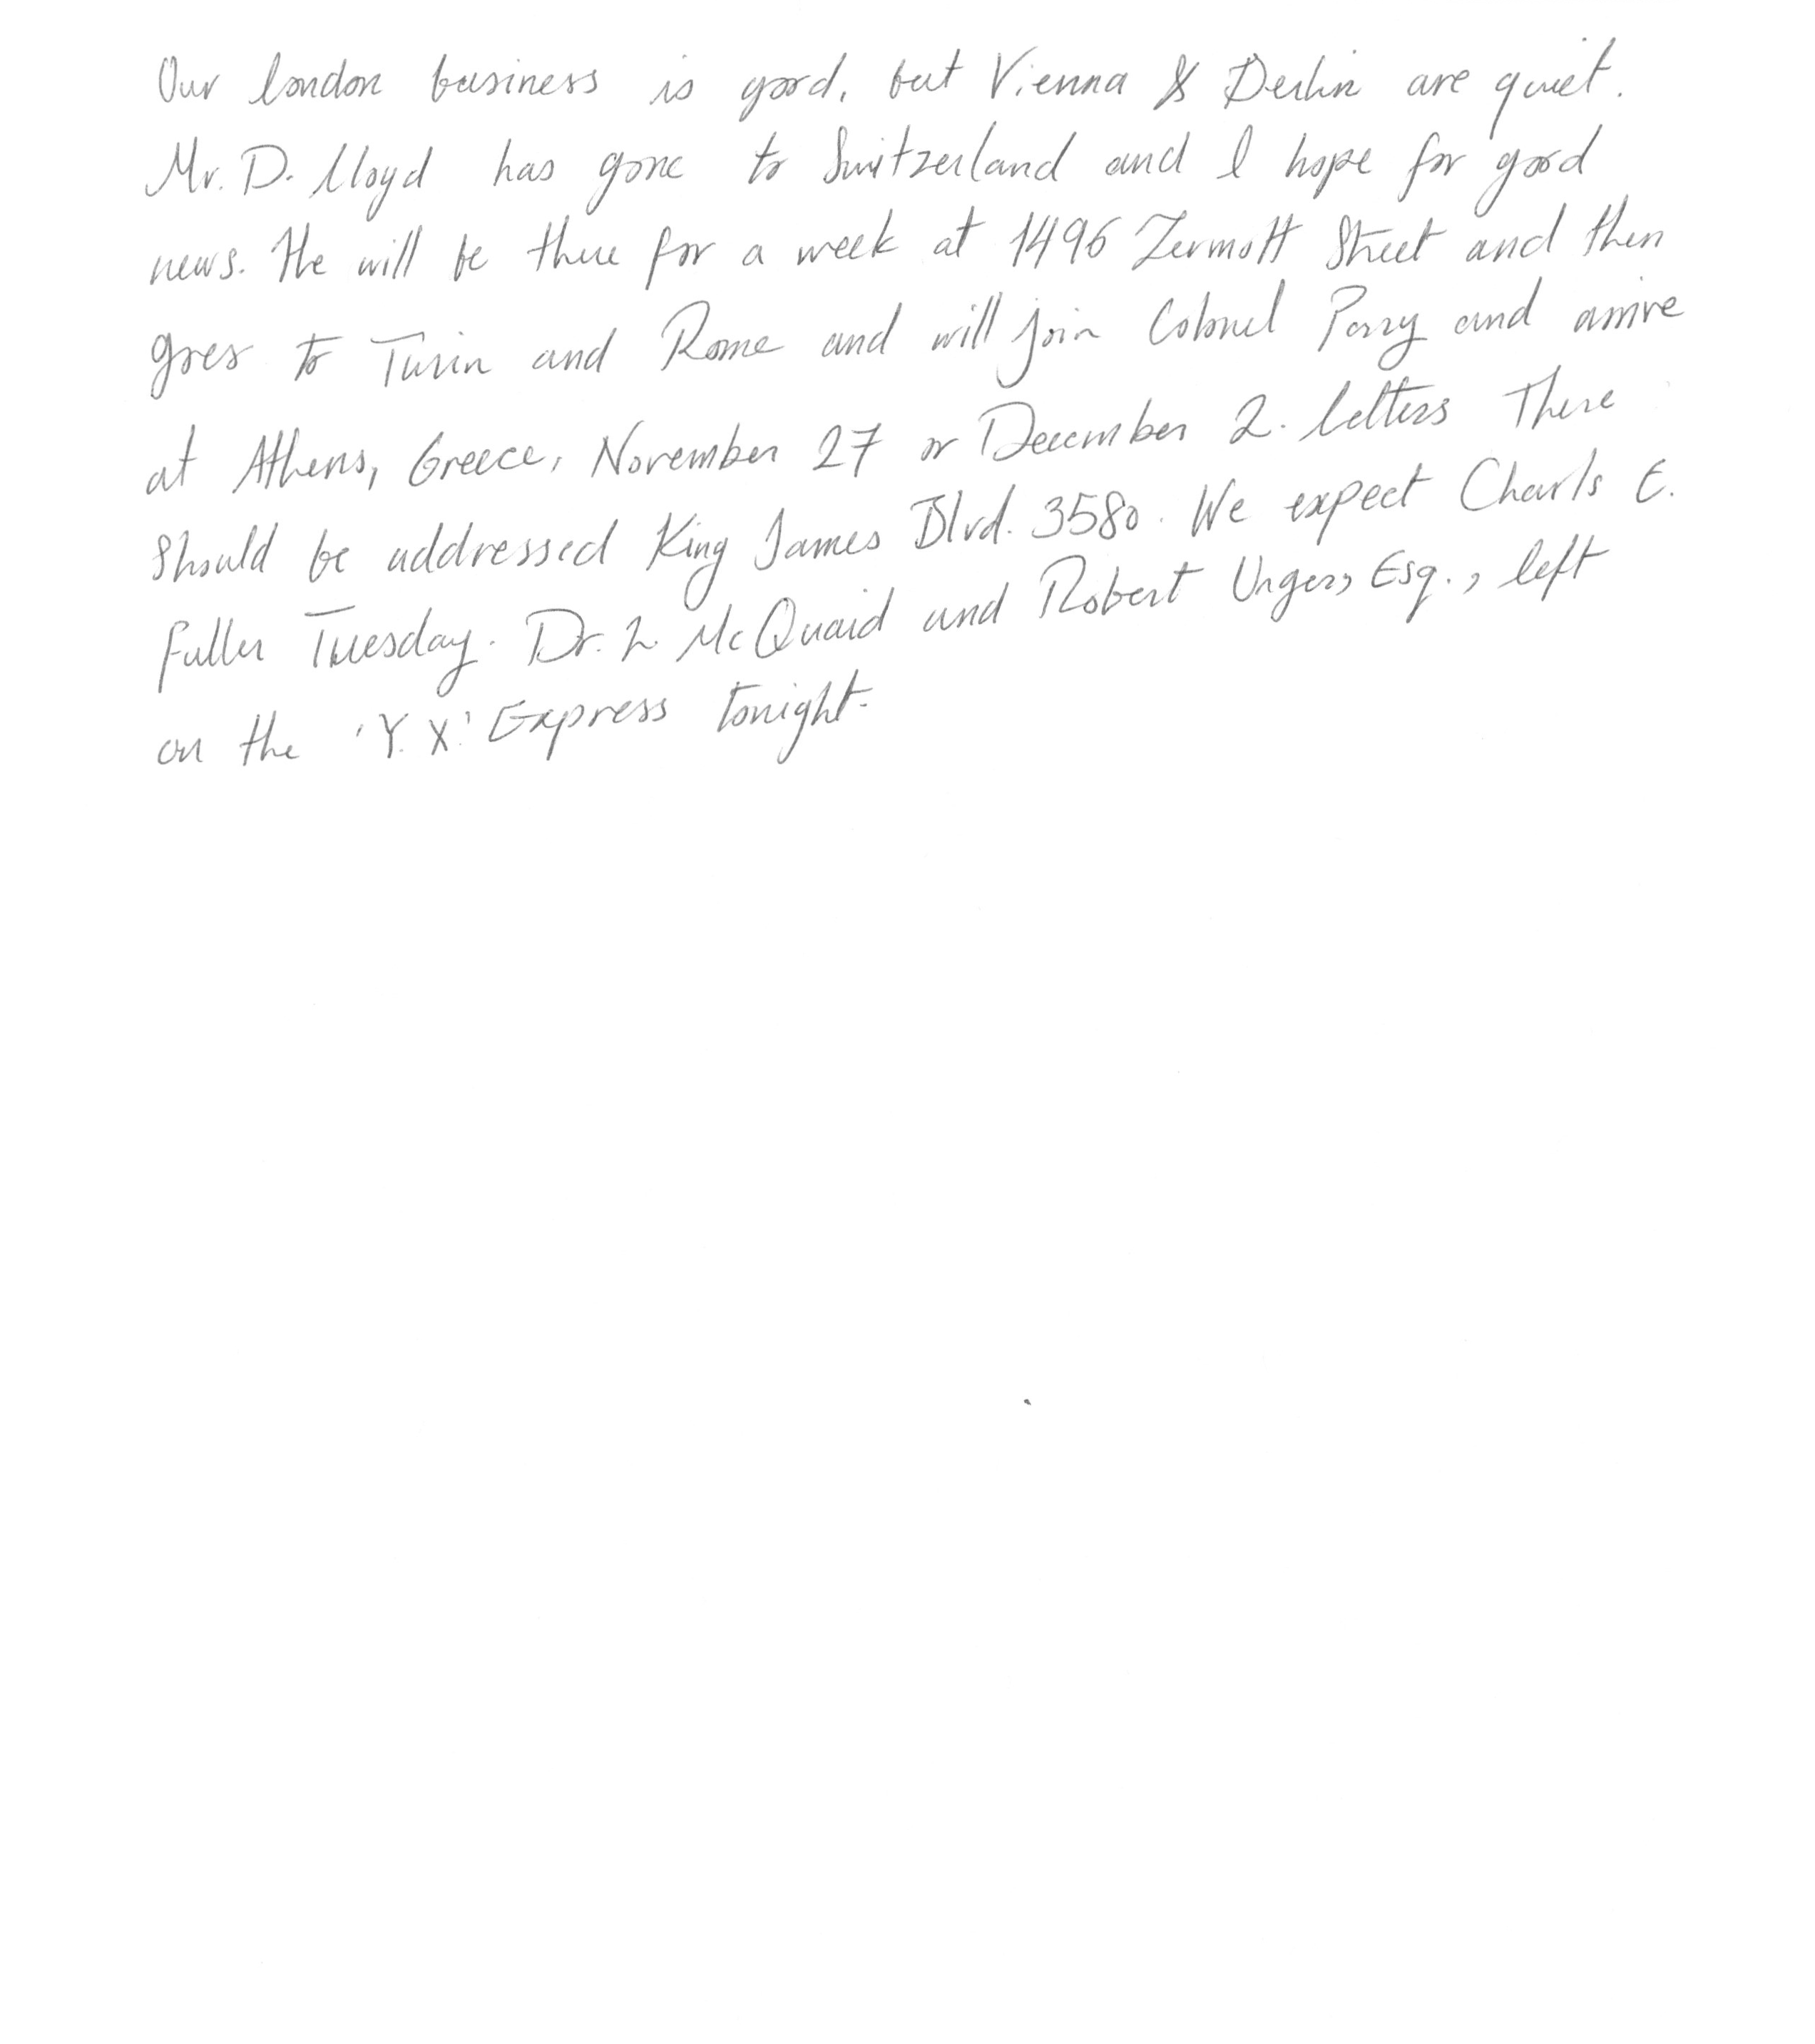 Our London business is good, but Vienna & Berlin are quiet.
Mr. D. Lloyd has gone to Switzerland and I hope for good
news. He will be there for a week at 1496 Zermott Street and then
goes to Turin and Rome and will join Colonel Parry and arrive
at Athens, Greece, November 27 or December 2. Letters There
Should be addressed King James Blvd. 3580. We expect Charls E.
Fuller Tuesday. Dr. L McQuaid and Robert Unger, Esq., left
on the 'Y.X.' Express tonight.